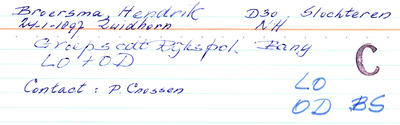 Broersma, Hendrik D30 Slochteren
24-1-1897 Zuidhorn NH
Groepscdt Rijkspol. Bang
LO + OD
C
Contact : P. Cnossen
LO
OD BS